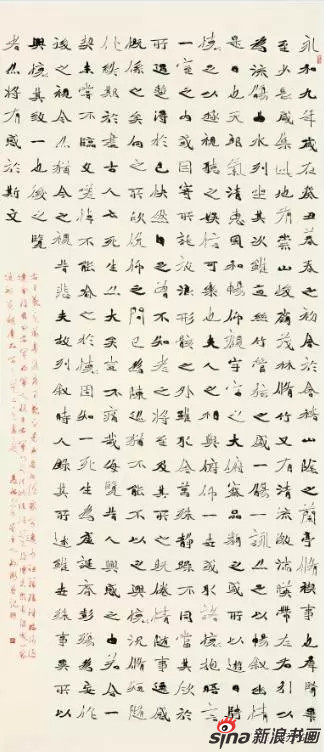 永和九年歲在癸丑暮春之初會于會稽山陰之蘭亭脩禊事也羣賢畢
至少長咸集此地有崇山峻領茂林脩竹又有清流激湍暎帶左右引以
為流觴曲水列坐其次雖無絲竹管弦之盛一觴一詠亦足以暢敘幽情
是日也天朗氣清惠風和暢仰觀宇宙之大俯察品類之盛所以遊目騁
懷足以極視聽之娛信可樂也夫人之相與俯仰一世或取諸懷抱悟言
一室之內或因寄所託放浪形骸之外雖趣舍萬殊靜躁不同當其欣於
所遇暫得於己快然自足不知老之將至及其所之既惓情隨事遷感
慨係之矣向之所欣俛仰之間已為陳迹猶不能不以之興懷況脩短隨
化終期於盡古人云死生亦大矣豈不痛哉每覽昔人興感之由若合一
契未嘗不臨文嗟悼不能喻之於懷固知一死生為虛誕齊彭殤為妄作
後之視今亦猶今之視昔悲夫故列敘時人錄其所述雖世殊事異所以
興懷其致一也後之覽
者亦將有感於斯文
sina新浪书画